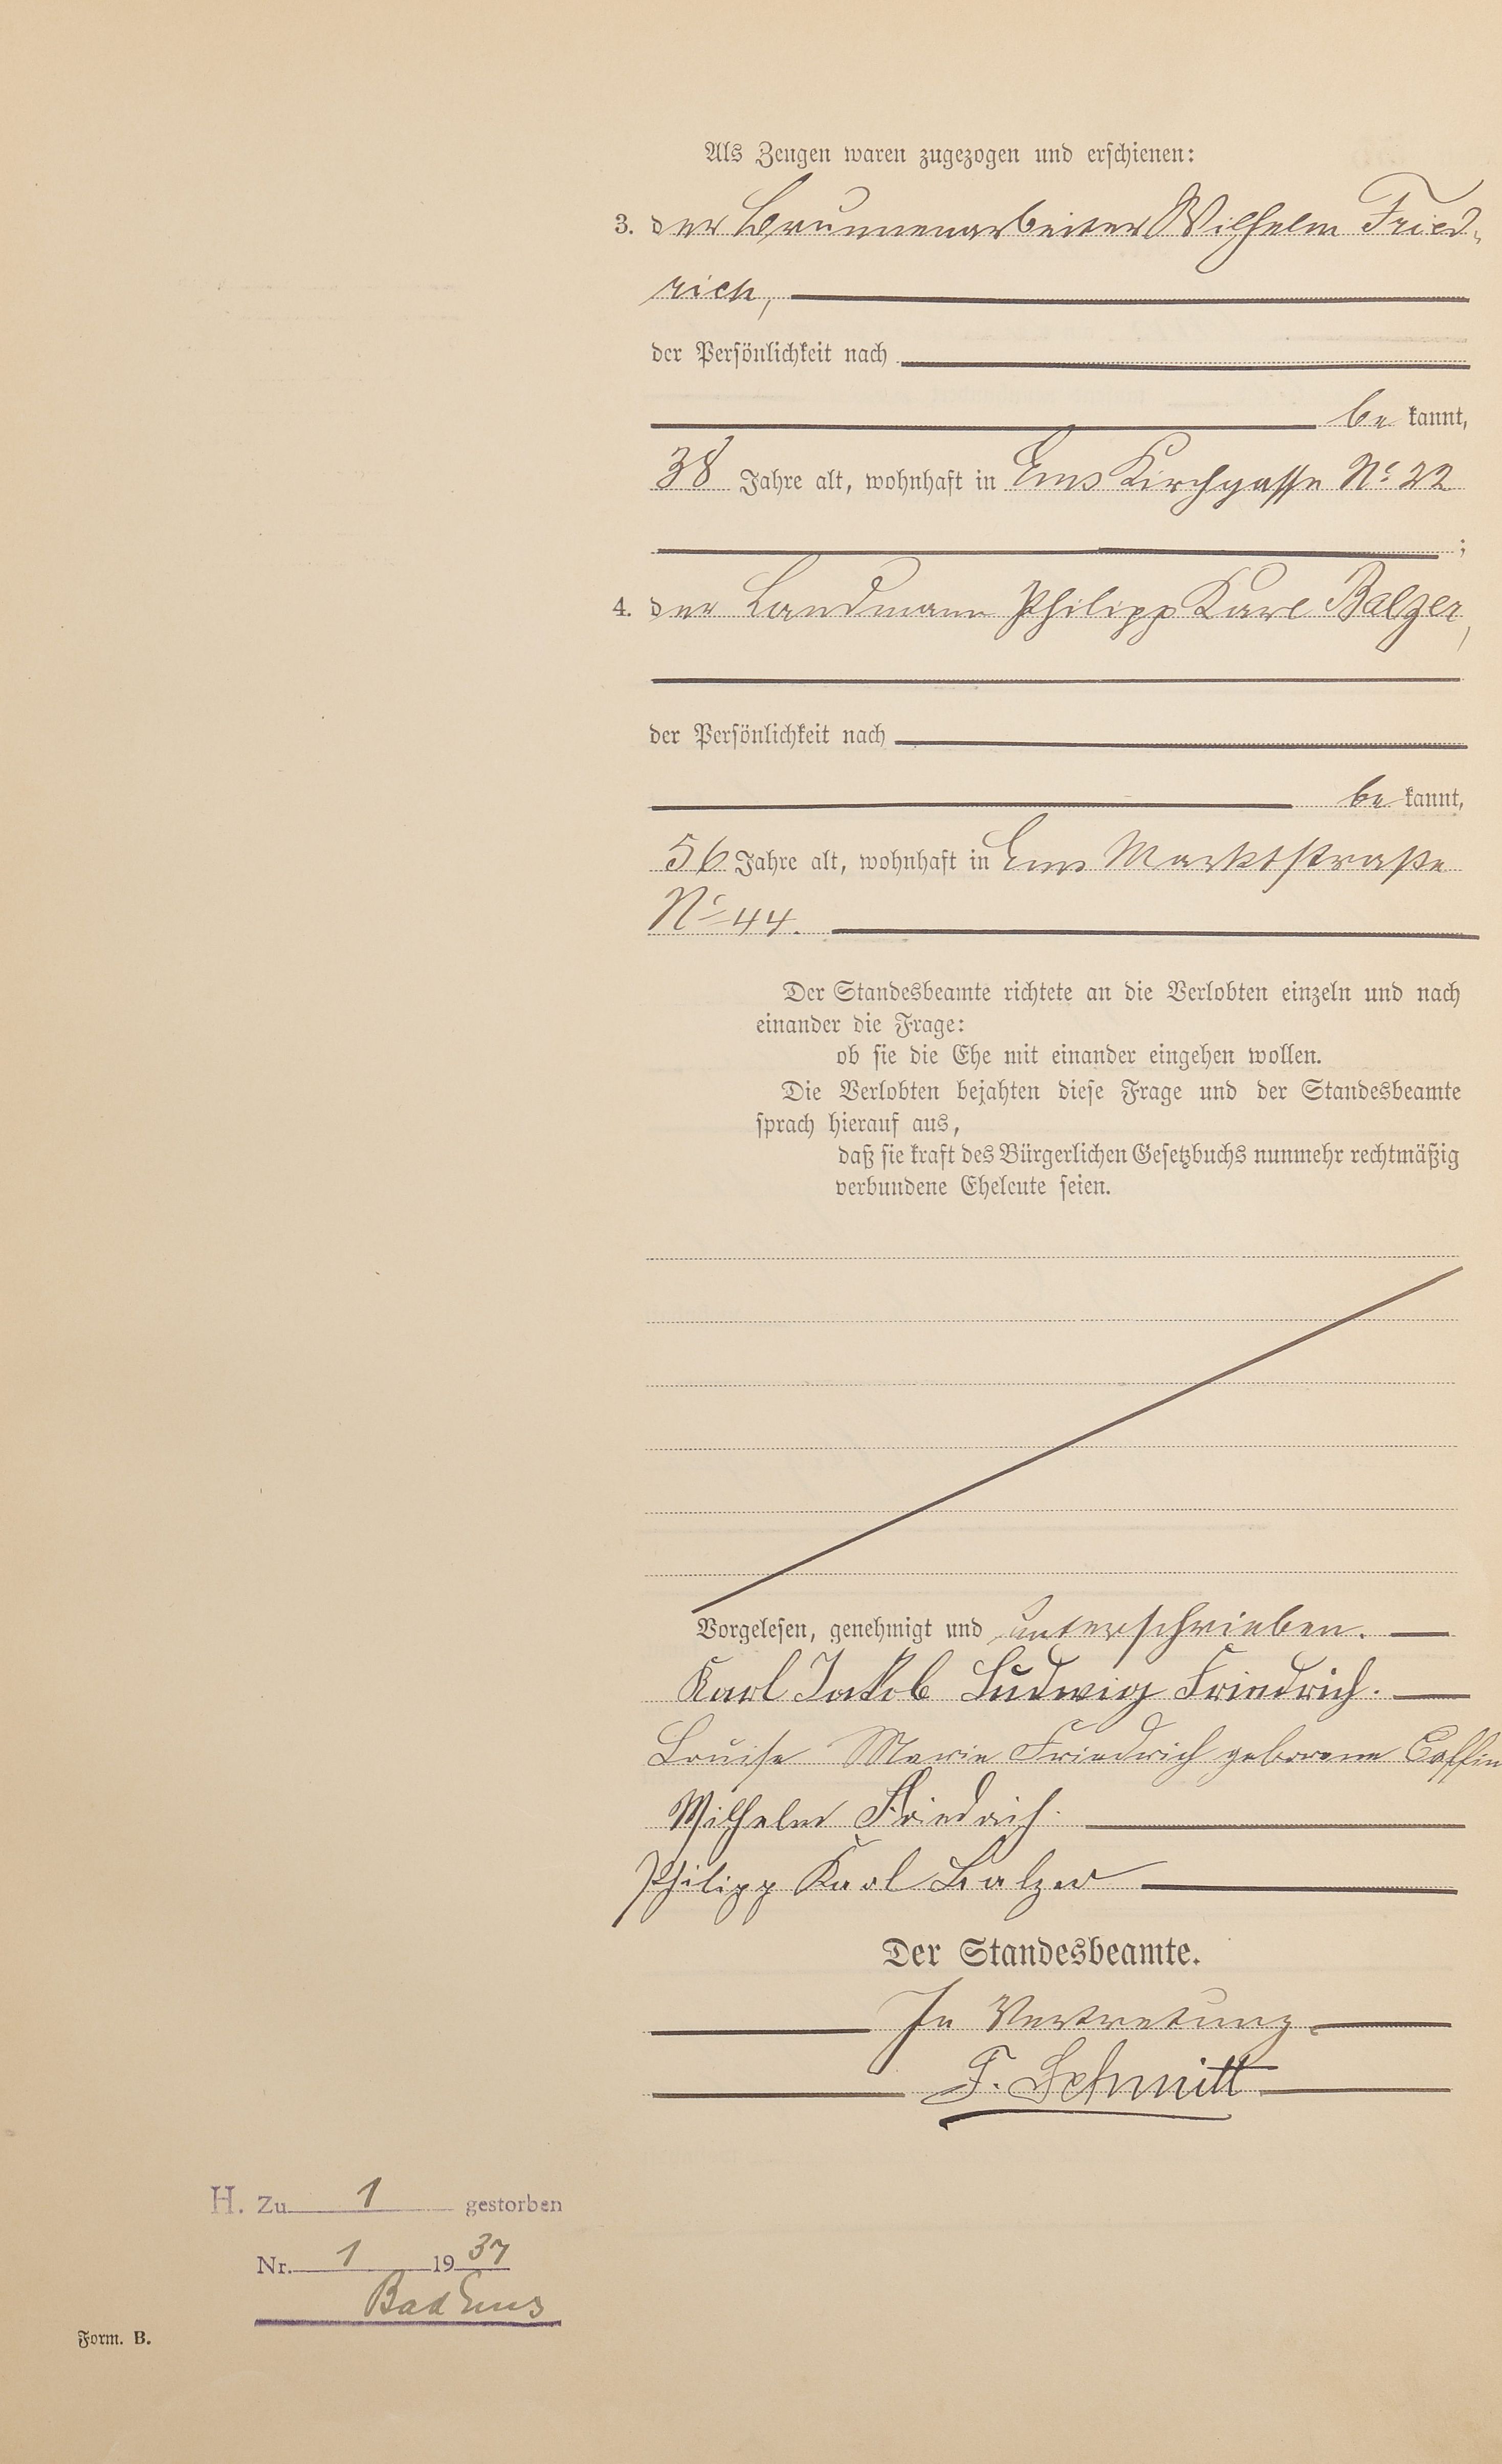 Als Zeugen waren zugezogen und erschienen:
3. der Brunnenarbeiter Wilhelm Fried-
rich,
der Persönlichkeit nach
be kannt,
38 Jahre alt, wohnhaft in Ems Kirchgasse No 22
;
4. der Landmann Philipp Karl Balzer,
der Persönlichkeit nach
be kannt,
56 Jahre alt, wohnhaft in Ems Marktstraße
No 44.
Der Standesbeamte richtete an die Verlobten einzeln und nach
einander die Frage:
ob sie die Ehe mit einander eingehen wollen.
Die Verlobten bejahten diese Frage und der Standesbeamte
sprach hierauf aus,
daß sie kraft des Bürgerlichen Gesetzbuchs nunmehr rechtmäßig
verbundene Eheleute seien.
Vorgelesen, genehmigt und unterschrieben.
Karl Jakob Ludwig Friedrich.
Louise Marie Friedrich geborene
Wilhelm Friedrich.
Philipp Karl Balzer
Der Standesbeamte.
In Vertretung
F. Schmitt
H. Zu 1 gestorben
Nr. 1 1937
Bad Ems
Form. B.